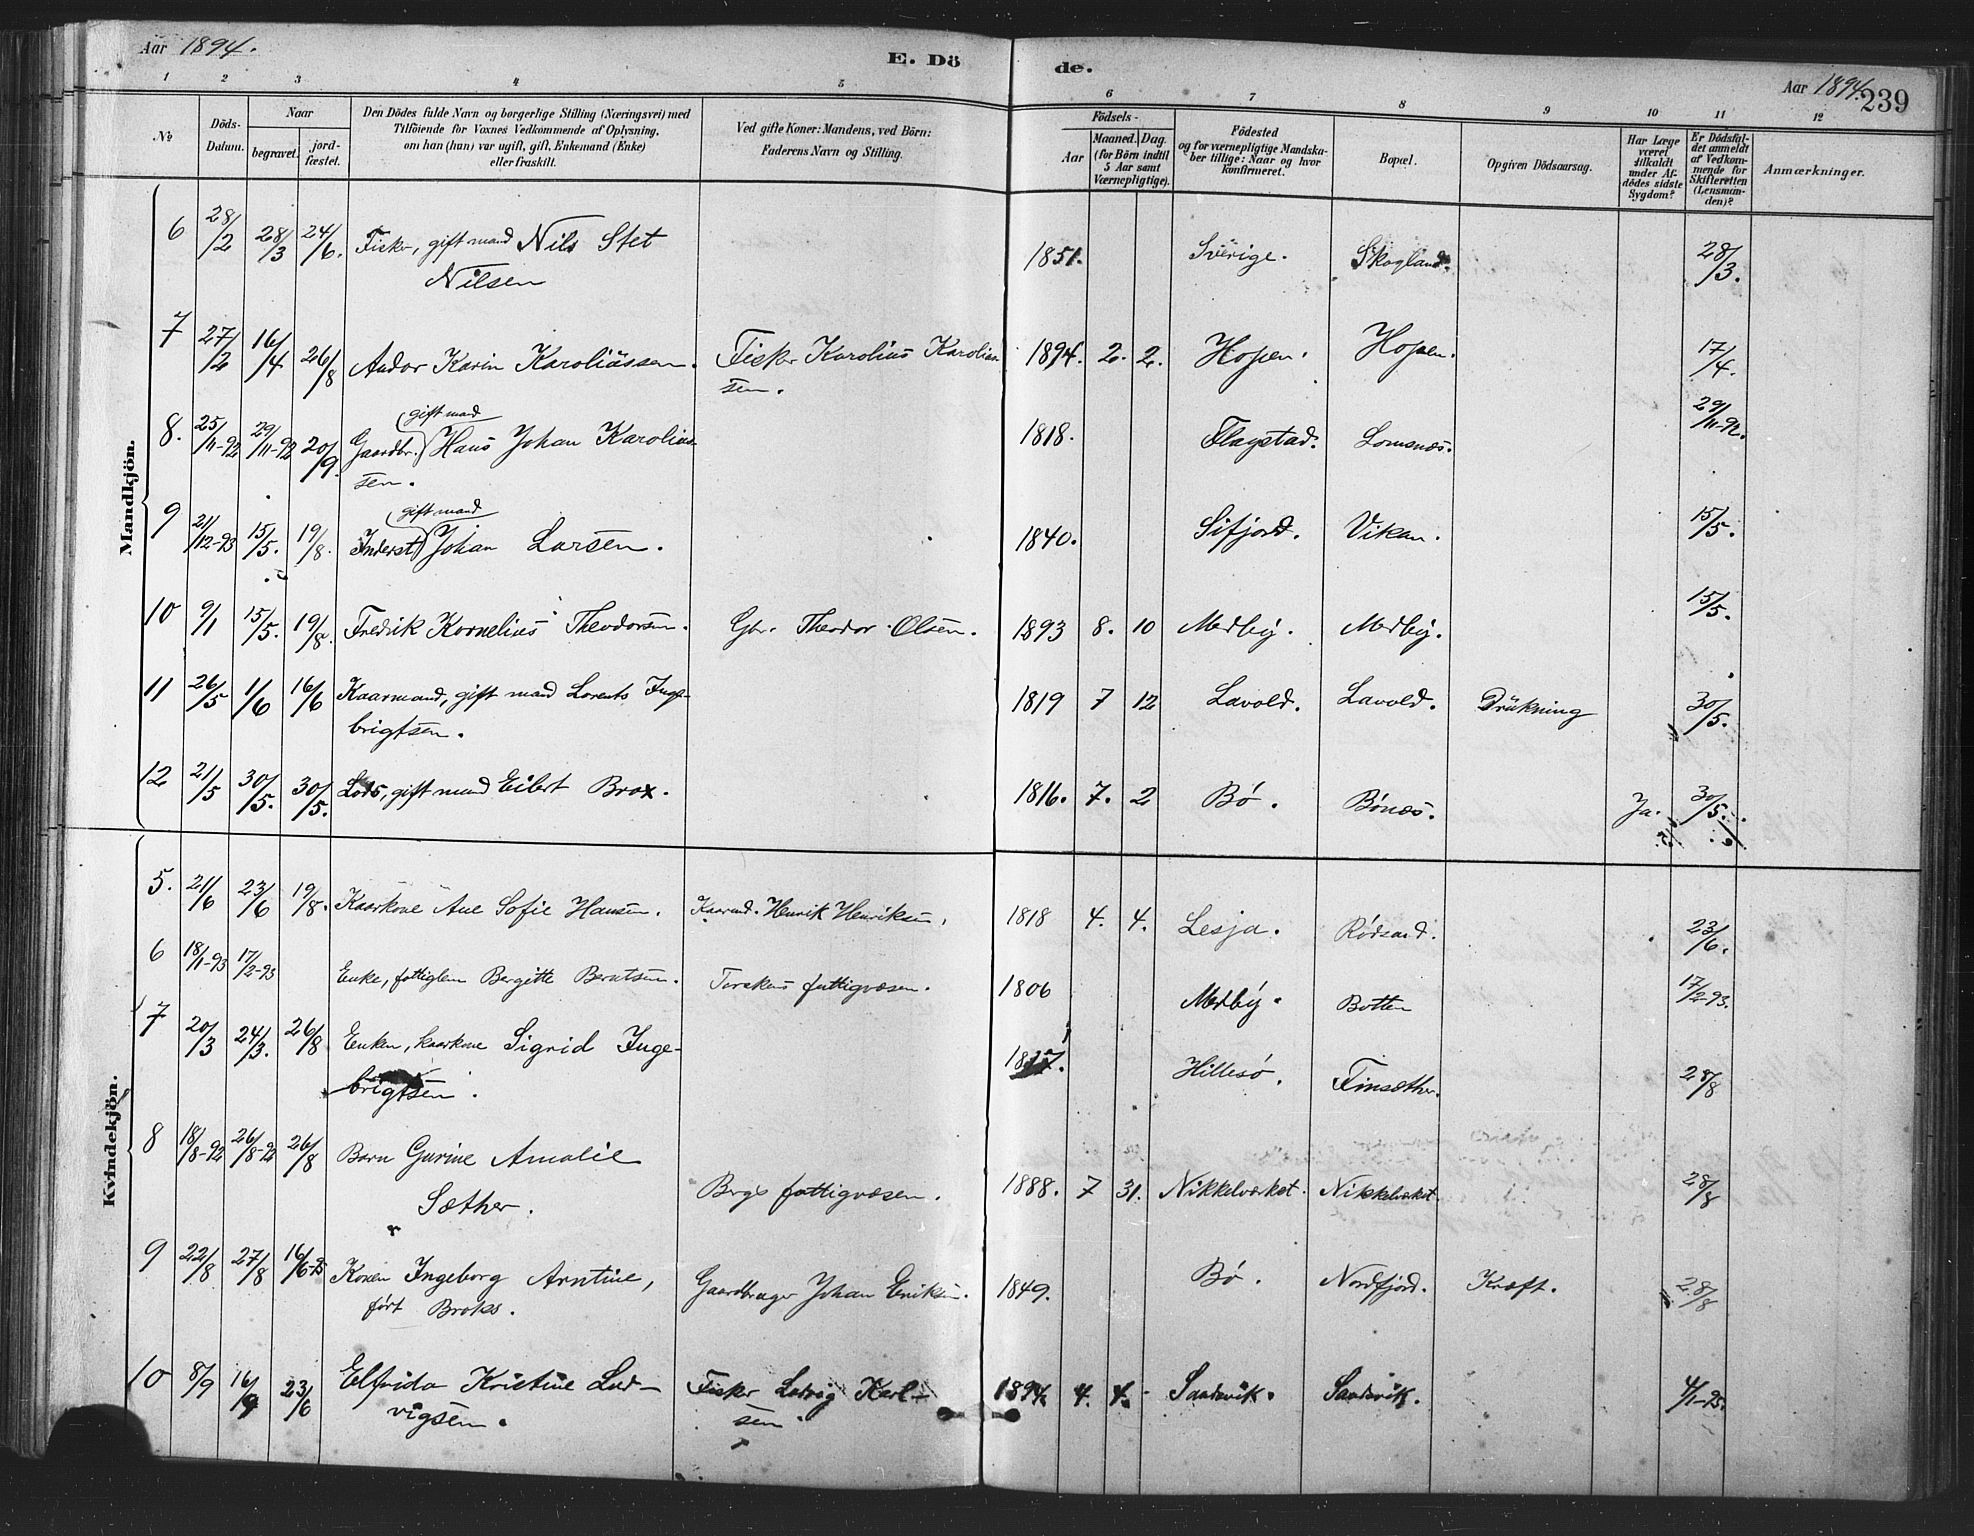 Aar 1894.
E. Dö
de.
Aar 1894.
239
1 2 3 4 5 6 7 8 9 10 11 12
No
Döds-
Datum.
Naar
begravet.
jord-
fæstet.
Den Dödes fulde Navn og borgerlige Stilling (Næringsvei) med
Tilföiende for Voxnes Vedkommende af Oplysning,
om han (hun) var ugift, gift, Enkemand (Enke)
eller fraskilt.
Ved gifte Koner: Mandens, ved Börn:
Faderens Navn og Stilling.
Födsels-
Aar
Maaned.
Dag.
(for Börn indtil
5 Aar samt
Værnepligtige).
Födested
og for værnepligtige Mandska-
ber tillige: Naar og hvor
konfirmeret.
Bopæl.
Opgiven Dödsaarsag.
Har Læge
været
tilkaldt
under Af-
dödes sidste
Sygdom?
Er Dödsfal-
det anmeldt
af Vedkom-
mende for
Skifteretten
(Lensman-
den)?
Anmærkninger.
Mandkjön.
6 28/2 28/3 24/6. Fisker, gift mand Nils Stet 1851. Sverige. Skogland. 28/3.
Nilsen
7 27/2 16/4 26/8 Andor Karin Karoliussen. Fisker Karolius Karolius 1894. 2. 2. Hopen. Hopen. 17/4.
sen.
gift mand
8. 25/11-92 29/11-92 20/9 Gaardbr. Hans Johan Karolius 1818. Flagstad. Lomsnæs. 29/11-92.
sen.
gift mand
9 21/12-93 15/5. 19/8. Inderst Johan Larsen. 1840. Sifjord. Vikan. 15/5.
10 9/1 15/5. 19/8. Fredrik Kornelius Theodorsen. Gbr. Theodor Olsen. 1893 8. 10 Medby. Medby. 15/5.
11 26/5 1/6 16/6 Kaarmand, gift mand Lorents Inge- 1819 7 12 Lavold. Lavold. Drukning 30/5.
brigtsen.
12 21/5 30/5. 30/5. Lods, gift mand Eilert Brox. 1816. 7. 2 Bø. Bønæs. Ja. 30/5.
Kvindekjön.
5. 21/6 23/6 19/8. Kaarkone Ane Sofie Hansen. Kaarmd. Henrik Henriksen. 1818 4. 4. Lesja. Rødsand. 23/6.
6 18/1-93 17/2-93 Enke, fattiglem Bergitte Berntsen. Torskens fattigvæsen. 1806 Medby. Botten 17/2-93.
7 20/3 24/3. 26/8 Enken, kaarkone Sigrid Inge- Hillesø. Finsæther. 28/8
brigtsen.
8 18/8-92 26/8-92 26/8 Barn Gurine Amalie
Sæther. Bergs fattigvæsen. 1888. 7 31. Nikkelværket. Nikkelværket. 28/8
9 22/8 27/8 16/6-95 Konen Ingeborg Arntine, Gaardbruger Johan Eriksen. 1849. Bø. Nordfjord. Kræft. 28/8
født Broks.
10 8/9 16/9 23/6 Elfrida Kristine Lud- Fisker Ludvig Karl- 1894. 4. 4. Sandsvik. Sandsvik. 4/1-95.
vigsen. sen.